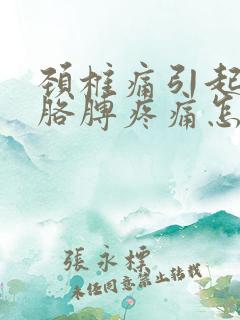 颈椎痛引起
胳脾疼痛怎
張永標
未任同意禁止转载